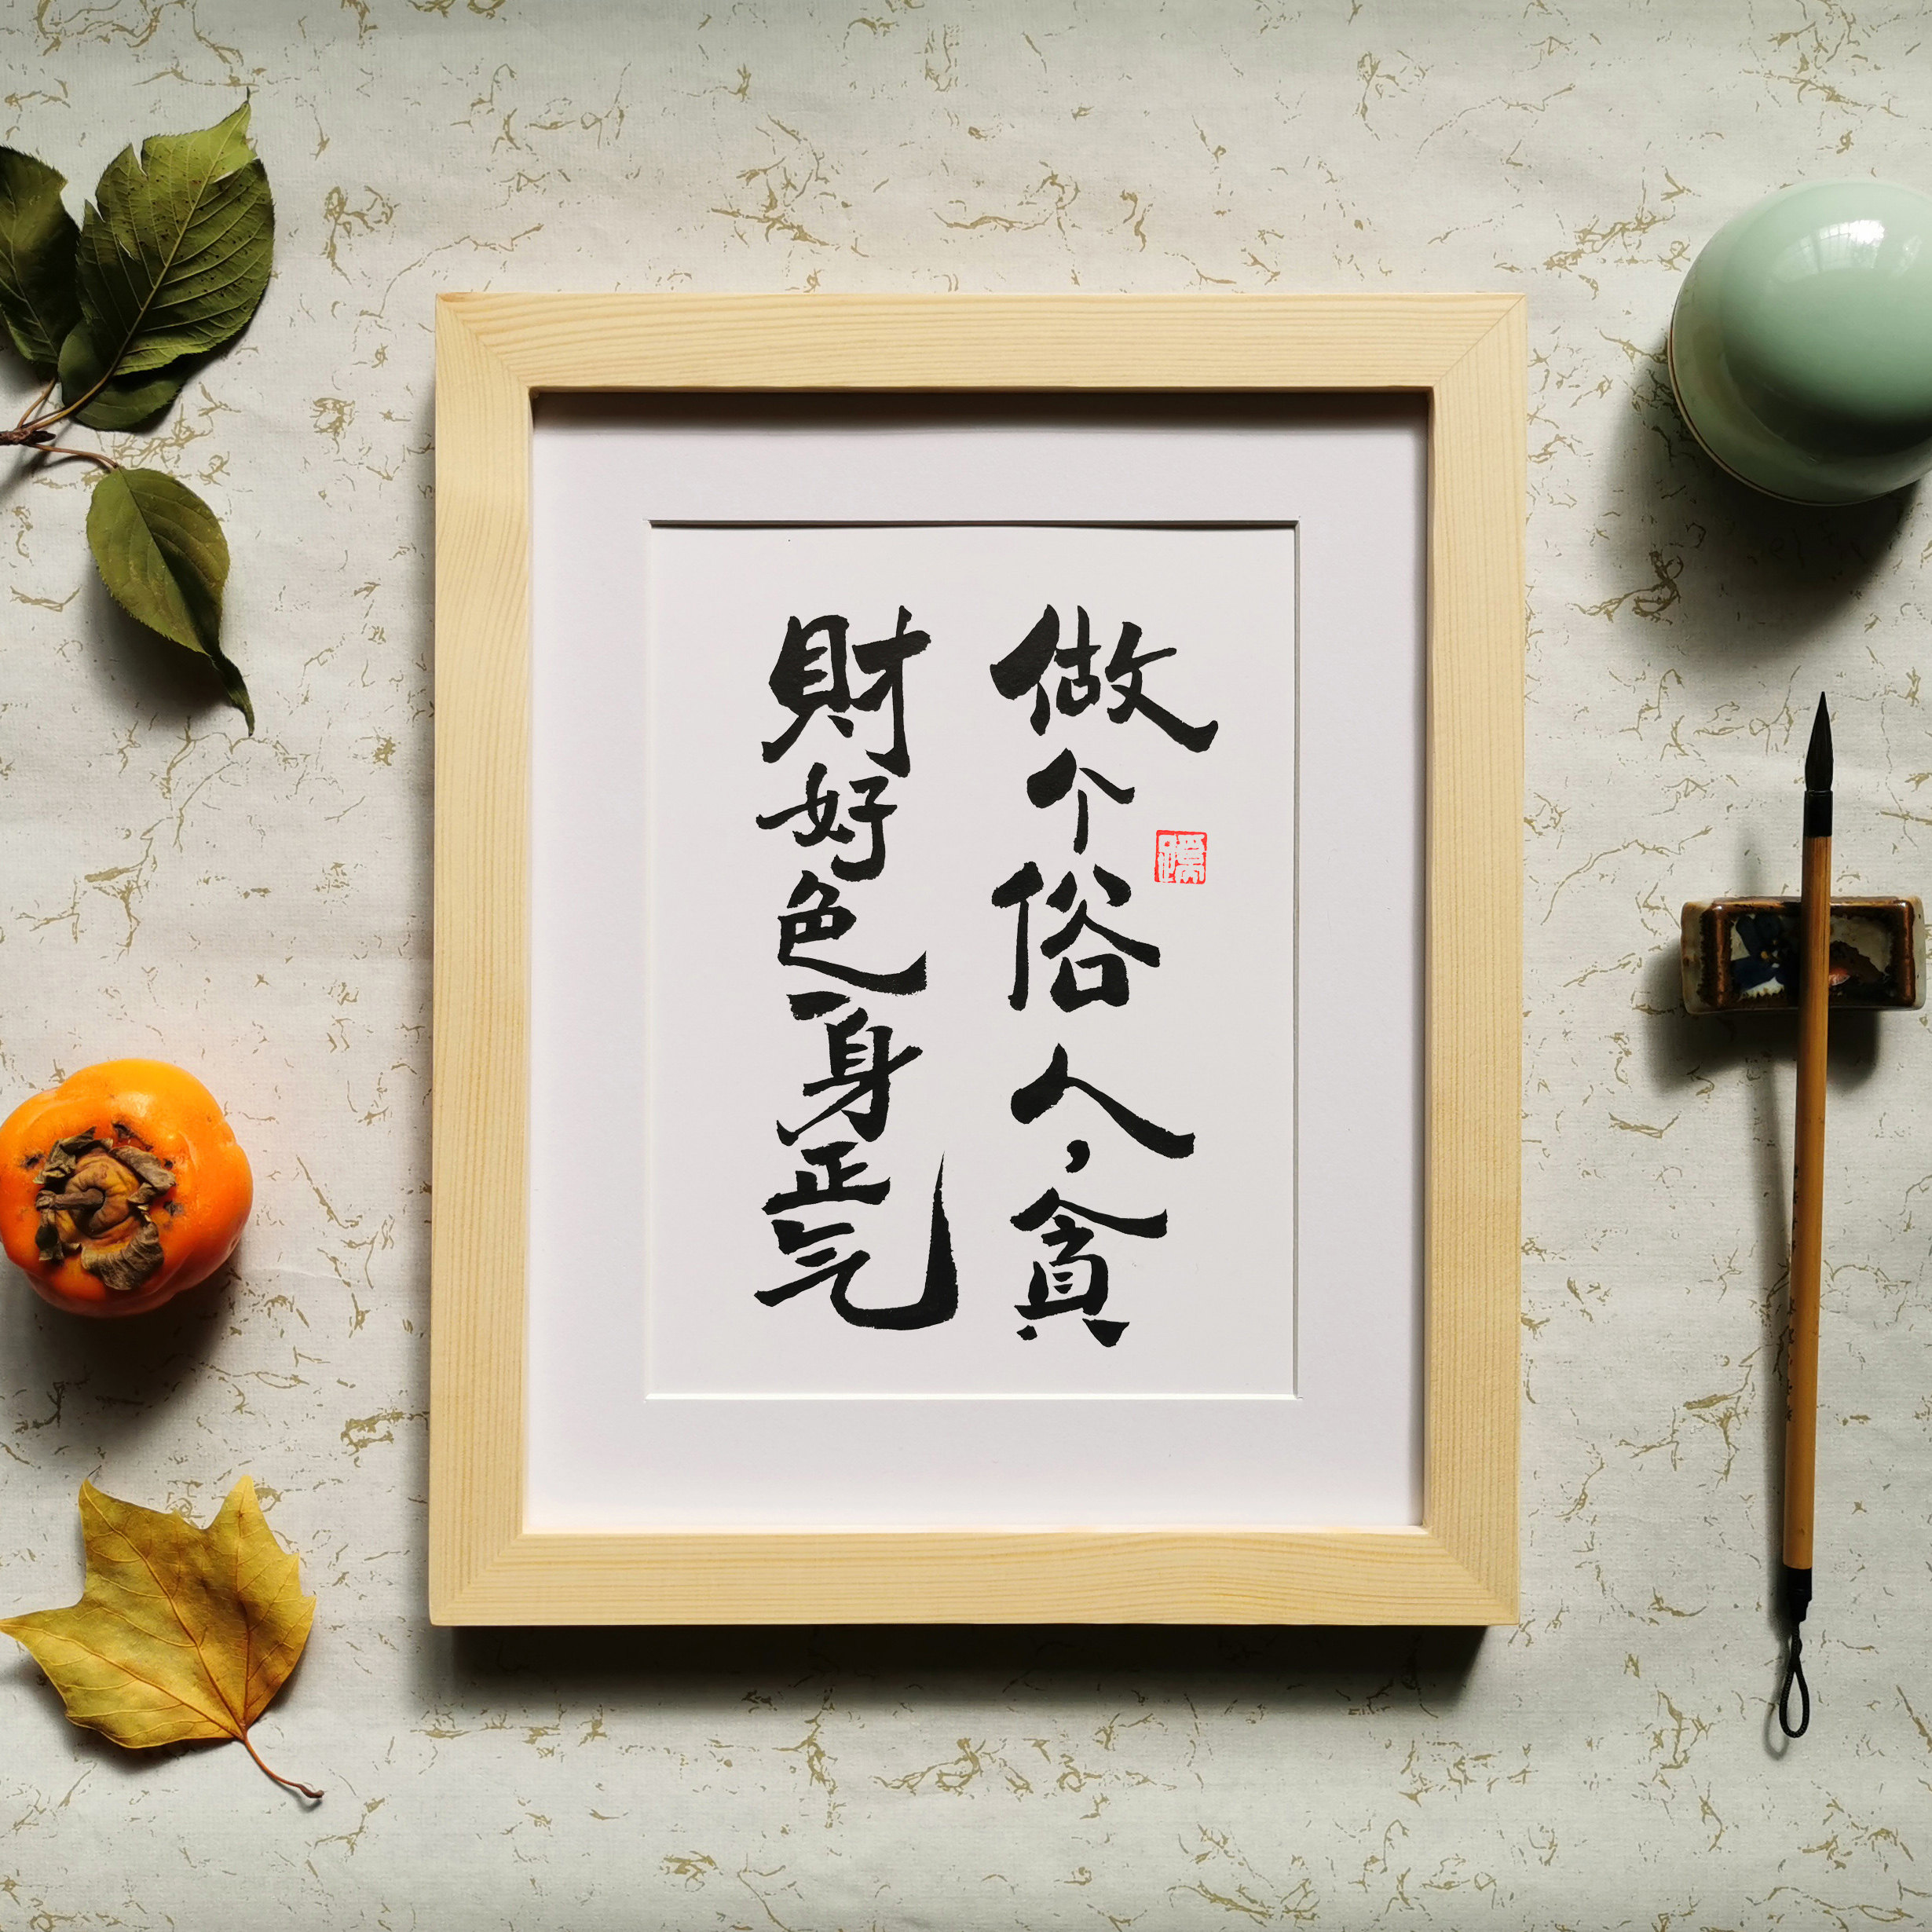 做个俗人，貪
財好色一身正气